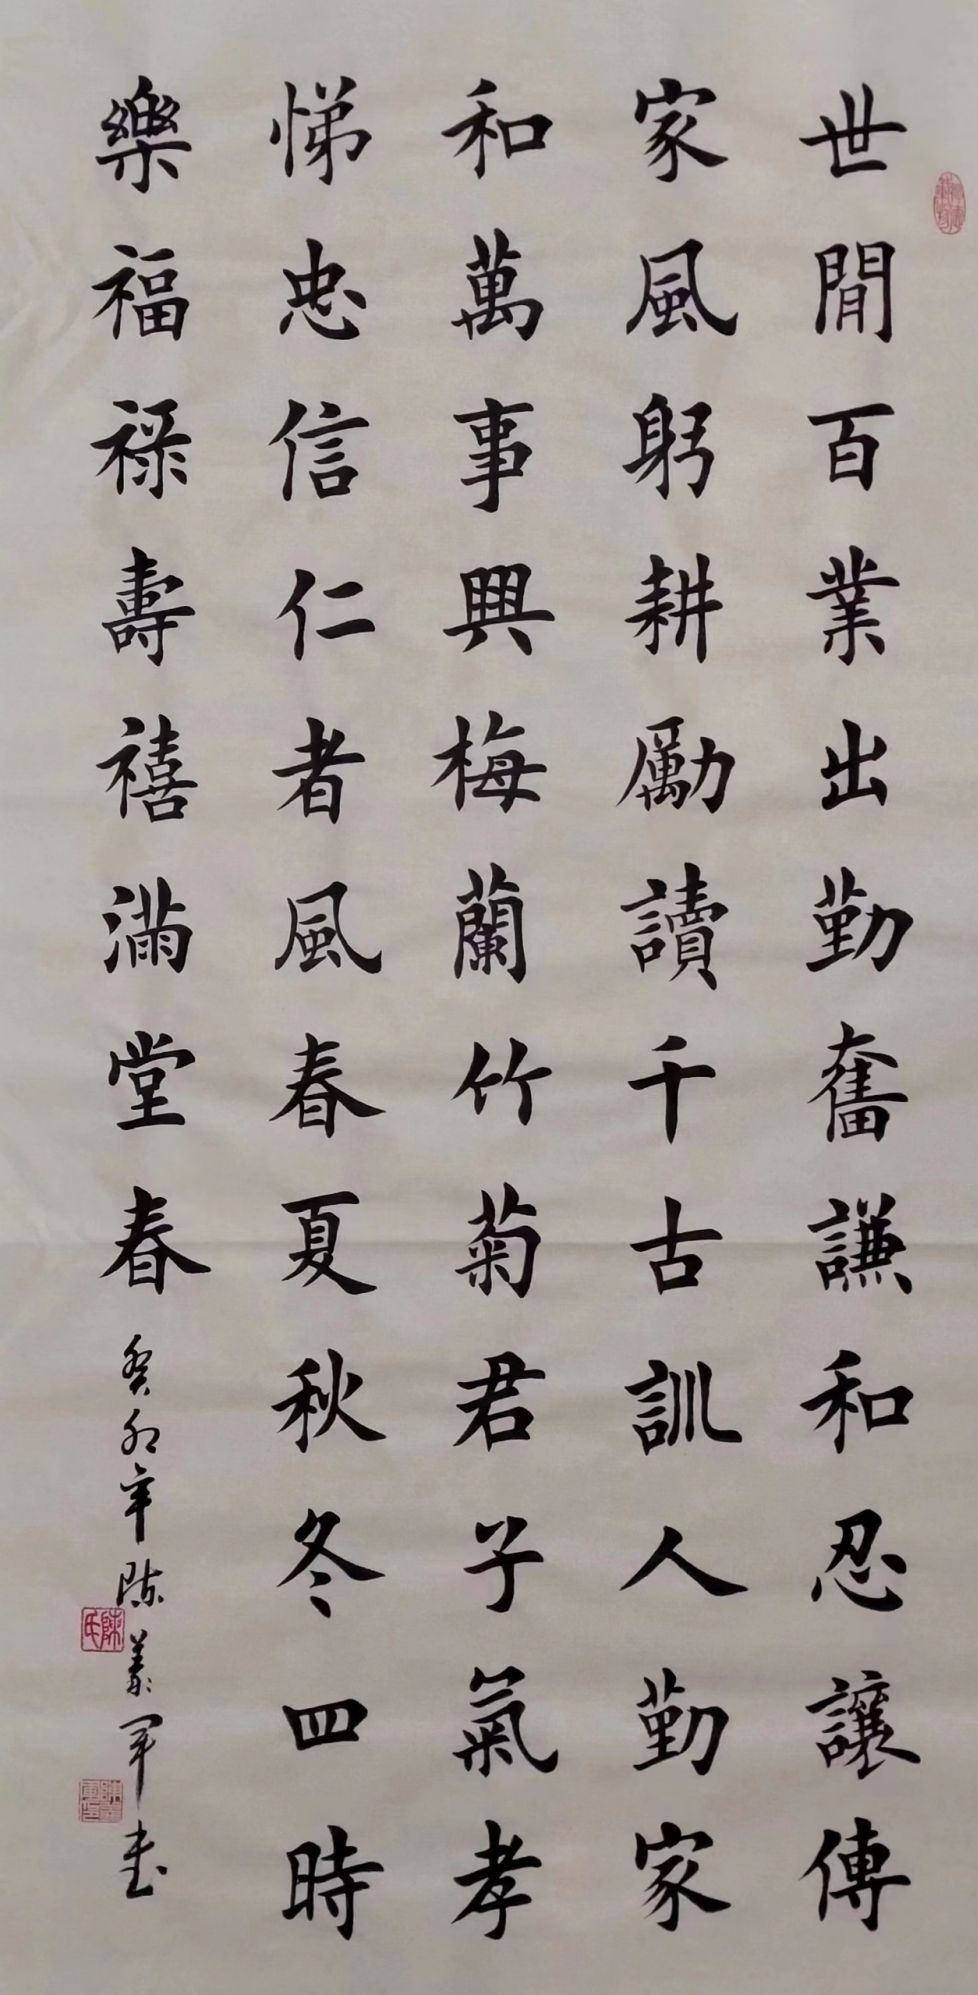 世間百業出勤奮謙和忍讓傳
家風躬耕勵讀千古訓人勤家
和萬事興梅蘭竹菊君子氣孝
悌忠信仁者風春夏秋冬四時
樂福祿壽禧滿堂春
癸卯年陈義军书
陳氏